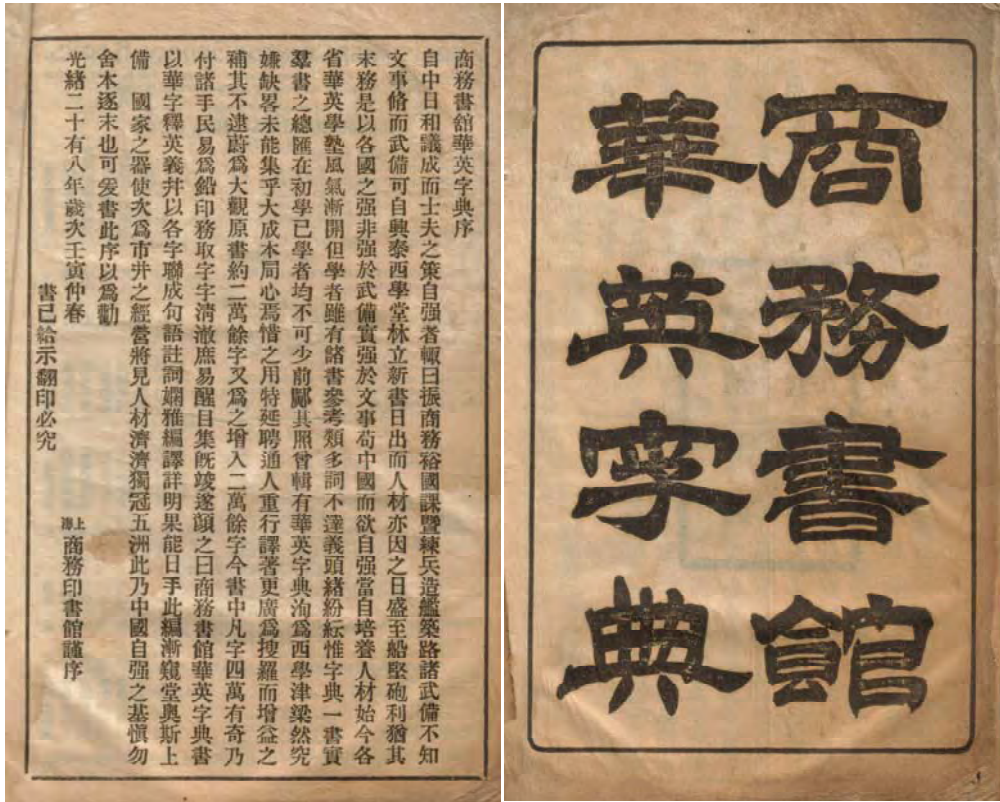 商務書館
華英字典
商務書舘華英字典序
自中日和議成而士夫之策自强者輙曰振商務裕國課曁練兵造艦築路諸武備不知
文事脩而武備可自興泰西學堂林立新書日出而人材亦因之日盛至船堅砲利猶其
末務是以各國之强非强於武備實强於文事苟中國而欲自强當自培養人材始今各
省華英學塾風氣漸開但學者雖有諸書參考類多詞不達義頭緒紛紜惟字典一書實
羣書之總匯在初學已學者均不可少前鄺其照曾輯有華英字典洵爲西學津梁然究
嫌缺畧未能集乎大成本局心焉惜之用特延聘通人重行譯著更廣爲搜羅而增益之
補其不逮蔚爲大觀原書約二萬餘字又爲之增入二萬餘字今書中凡字四萬有奇乃
付諸手民易爲鉛印務取字字淸澈庶易醒目集旣竣遂顏之曰商務書館華英字典書
以華字釋英義幷以各字聯成句語註詞嫻雅編譯詳明果能日手此編漸窺堂奧斯上
備　國家之器使次爲市井之經營將見人材濟濟獨冠五洲此乃中國自强之基愼勿
舍本逐末也可爰書此序以爲勸
光緒二十有八年歲次壬寅仲春　上海商務印書館謹序
書已給示翻印必究